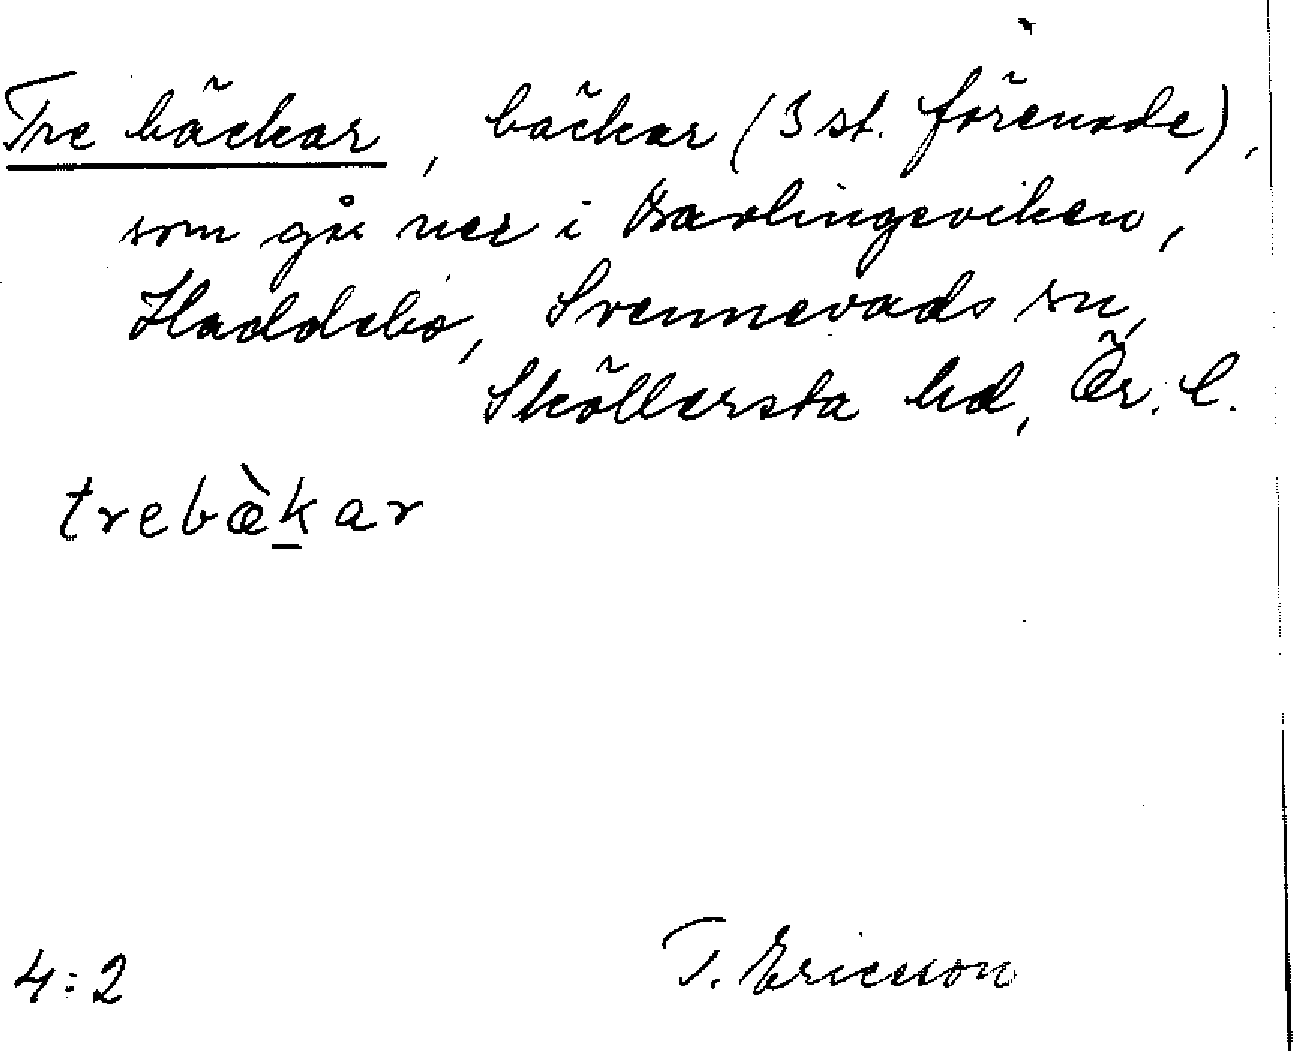 Tre bäckar, bäckar (3 st. förenade),
som gå ner i Barlingeviken,
Haddebo, Svennevads sn,
Sköllersta hd, Ör. l.
trebæ̀k̲ar
4:2 T. Ericsson